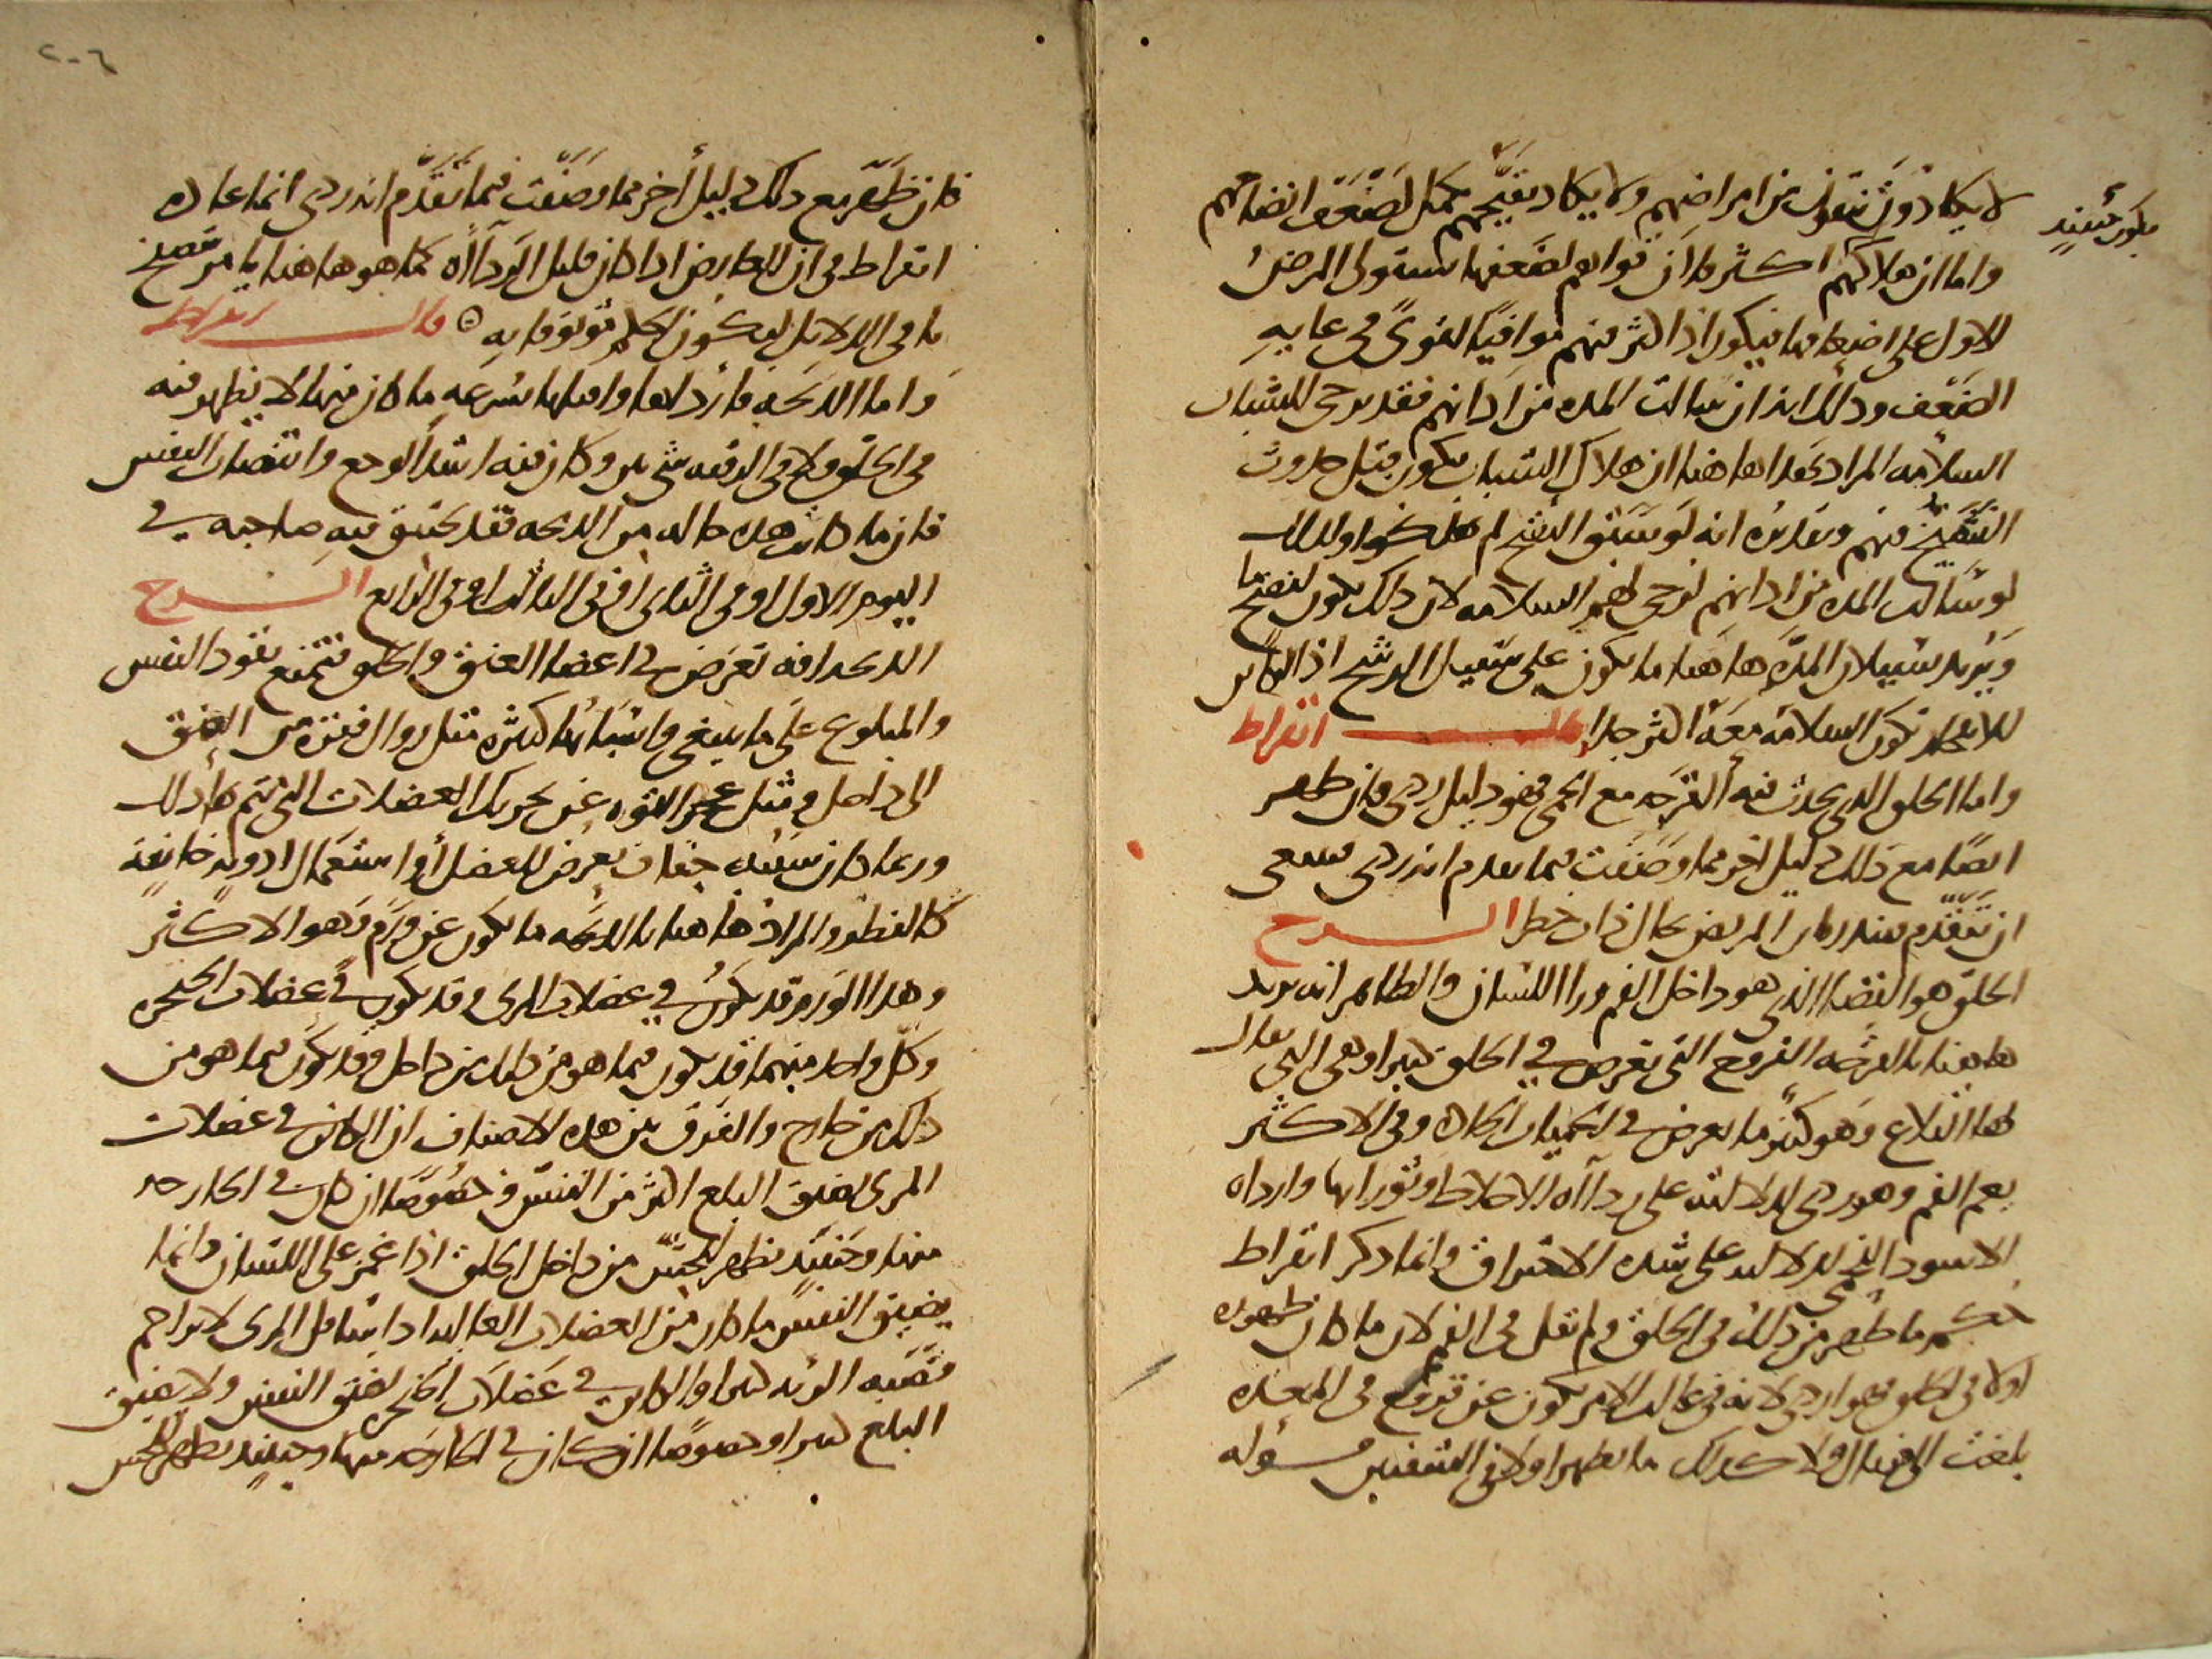 لا يكادون يتقون من امراضهم ولا يكاد يقيحهم يكمل لضعف انضاجهم
يكون حينئذ
واما ان هلاكهم اكثر فلان قواهم لضعفها يستولي المرض
الاول على اضعافها فيكون اذا اكثر منهم موافيا القوى في غايه
الضعف وذلك انذار سالت المده من اذانهم فقد يرجى للشباب
السلامه المراد بهذا هاهنا ان هلاك الشبان يكون قبل حدوث
التقيح منهم وتقديره انه لو سبق التقيح لم يهلكوا ولذلك
لو سالت المده من اذانهم لرجى لهم السلامه لان ذلك يكون لنضج ما
ويريد بسيلان المده هاهنا ما يكون على سبيل الرشح اذ الكاين
للانفجار تكون السلامه معه اكثر جدا قال ابقراط
واما الحلق الذي يحدث فيه القرحه مع الحمى فهو دليل ردي فان ظهر
ايضا مع ذلك دليل اخر مما وصفت فيما تقدم انه ردي فينبغي
ان تتقدم فتنذر بان المريض بحال ذات خطر الشرح
الحلق هو الفضا الذي هو داخل الفم ورا اللسان والظاهر انه يريد
هاهنا بالقرحه القروح التي تعرض في الحلق كثيرا وهي التي يقال
لها القلاع وهو كثيرا ما يعرض في الحميات الحاده وفي الاكثر
يعم الفم وهو ردي لدلالته على رداه الاخلاط وثورانها وارداه
الاسود الذي لدلالته على شده الاحتراق وانما ذكر ابقراط
حكم ما ظهر من ذلك في الحلق ولم يقل في الفم لان ما كان ظهوره
اولا في الحلق فهو اردى لانه في غالب الامر يكون عن قروح في المعده
بلغت الى هناك ولا كذلك ما يظهر اولا في الشفتين قوله
٢٠٦
فان ظهر مع ذلك دليل اخر مما وصفت فيما تقدم انه ردي انما عاده
ابقراط في ان العارض اذا كان قليل الرداه كما هو هاهنا يامر بتصفح
باقي الدلايل ليكون الحكم موثوقا به قال ابقراط
واما الذبحه فاردلها واقتلها بسرعه ما كان منها لا يظهر منه
في الحلق ولا في الرقبه شي بين وكان فيه اشد الوجع وانتصاب النفس
فان ما كانت هذه حاله من الذبحه فقد يختنق فيه صاحبه في
اليوم الاول او في الثاني او في الثالث او في الرابع الشرح
الذبحه افه تعرض في اعضا العنق والحلق فتمنع نفوذ النفس
والمبلوع على ما ينبغي واسبابها كثيره مثل زوال فقره من العنق
الى داخل ومثل عجز القوه عن تحريك العضلات التي يتم بها ذلك
وربما كان سببه جفاف يعرض للعضل او استعمال ادويه خانقه
كالفطر والمراد هاهنا بالذبحه ما يكون عن ورم وهو الاكثر
وهذا الورم قد يكون في عضلات المرى وقد يكون في عضلات الحنجره
وكل واحد منهما قد يكون فيما هو من ذلك من داخل وقد يكون فيما هو من
ذلك من خارج والفرق بين هذه الاصناف ان الكاين في عضلات
المرى يضيق البلع اكثر من التنفس وخصوصا ان كان في الخارجه
منها وحينئذ يظهر للحس من داخل الحلق اذا غمز على اللسان وانما
يضيق النفس ما كان من العضلات العاليه اذ اسافل المرى لا يزاحم
قصبه الريه كثيرا والكاين في عضلات الحنجره يضيق النفس ولا يضيق
البلع كثيرا وخصوصا ان كان في الخارجه منها وحينئذ يظهر للحس